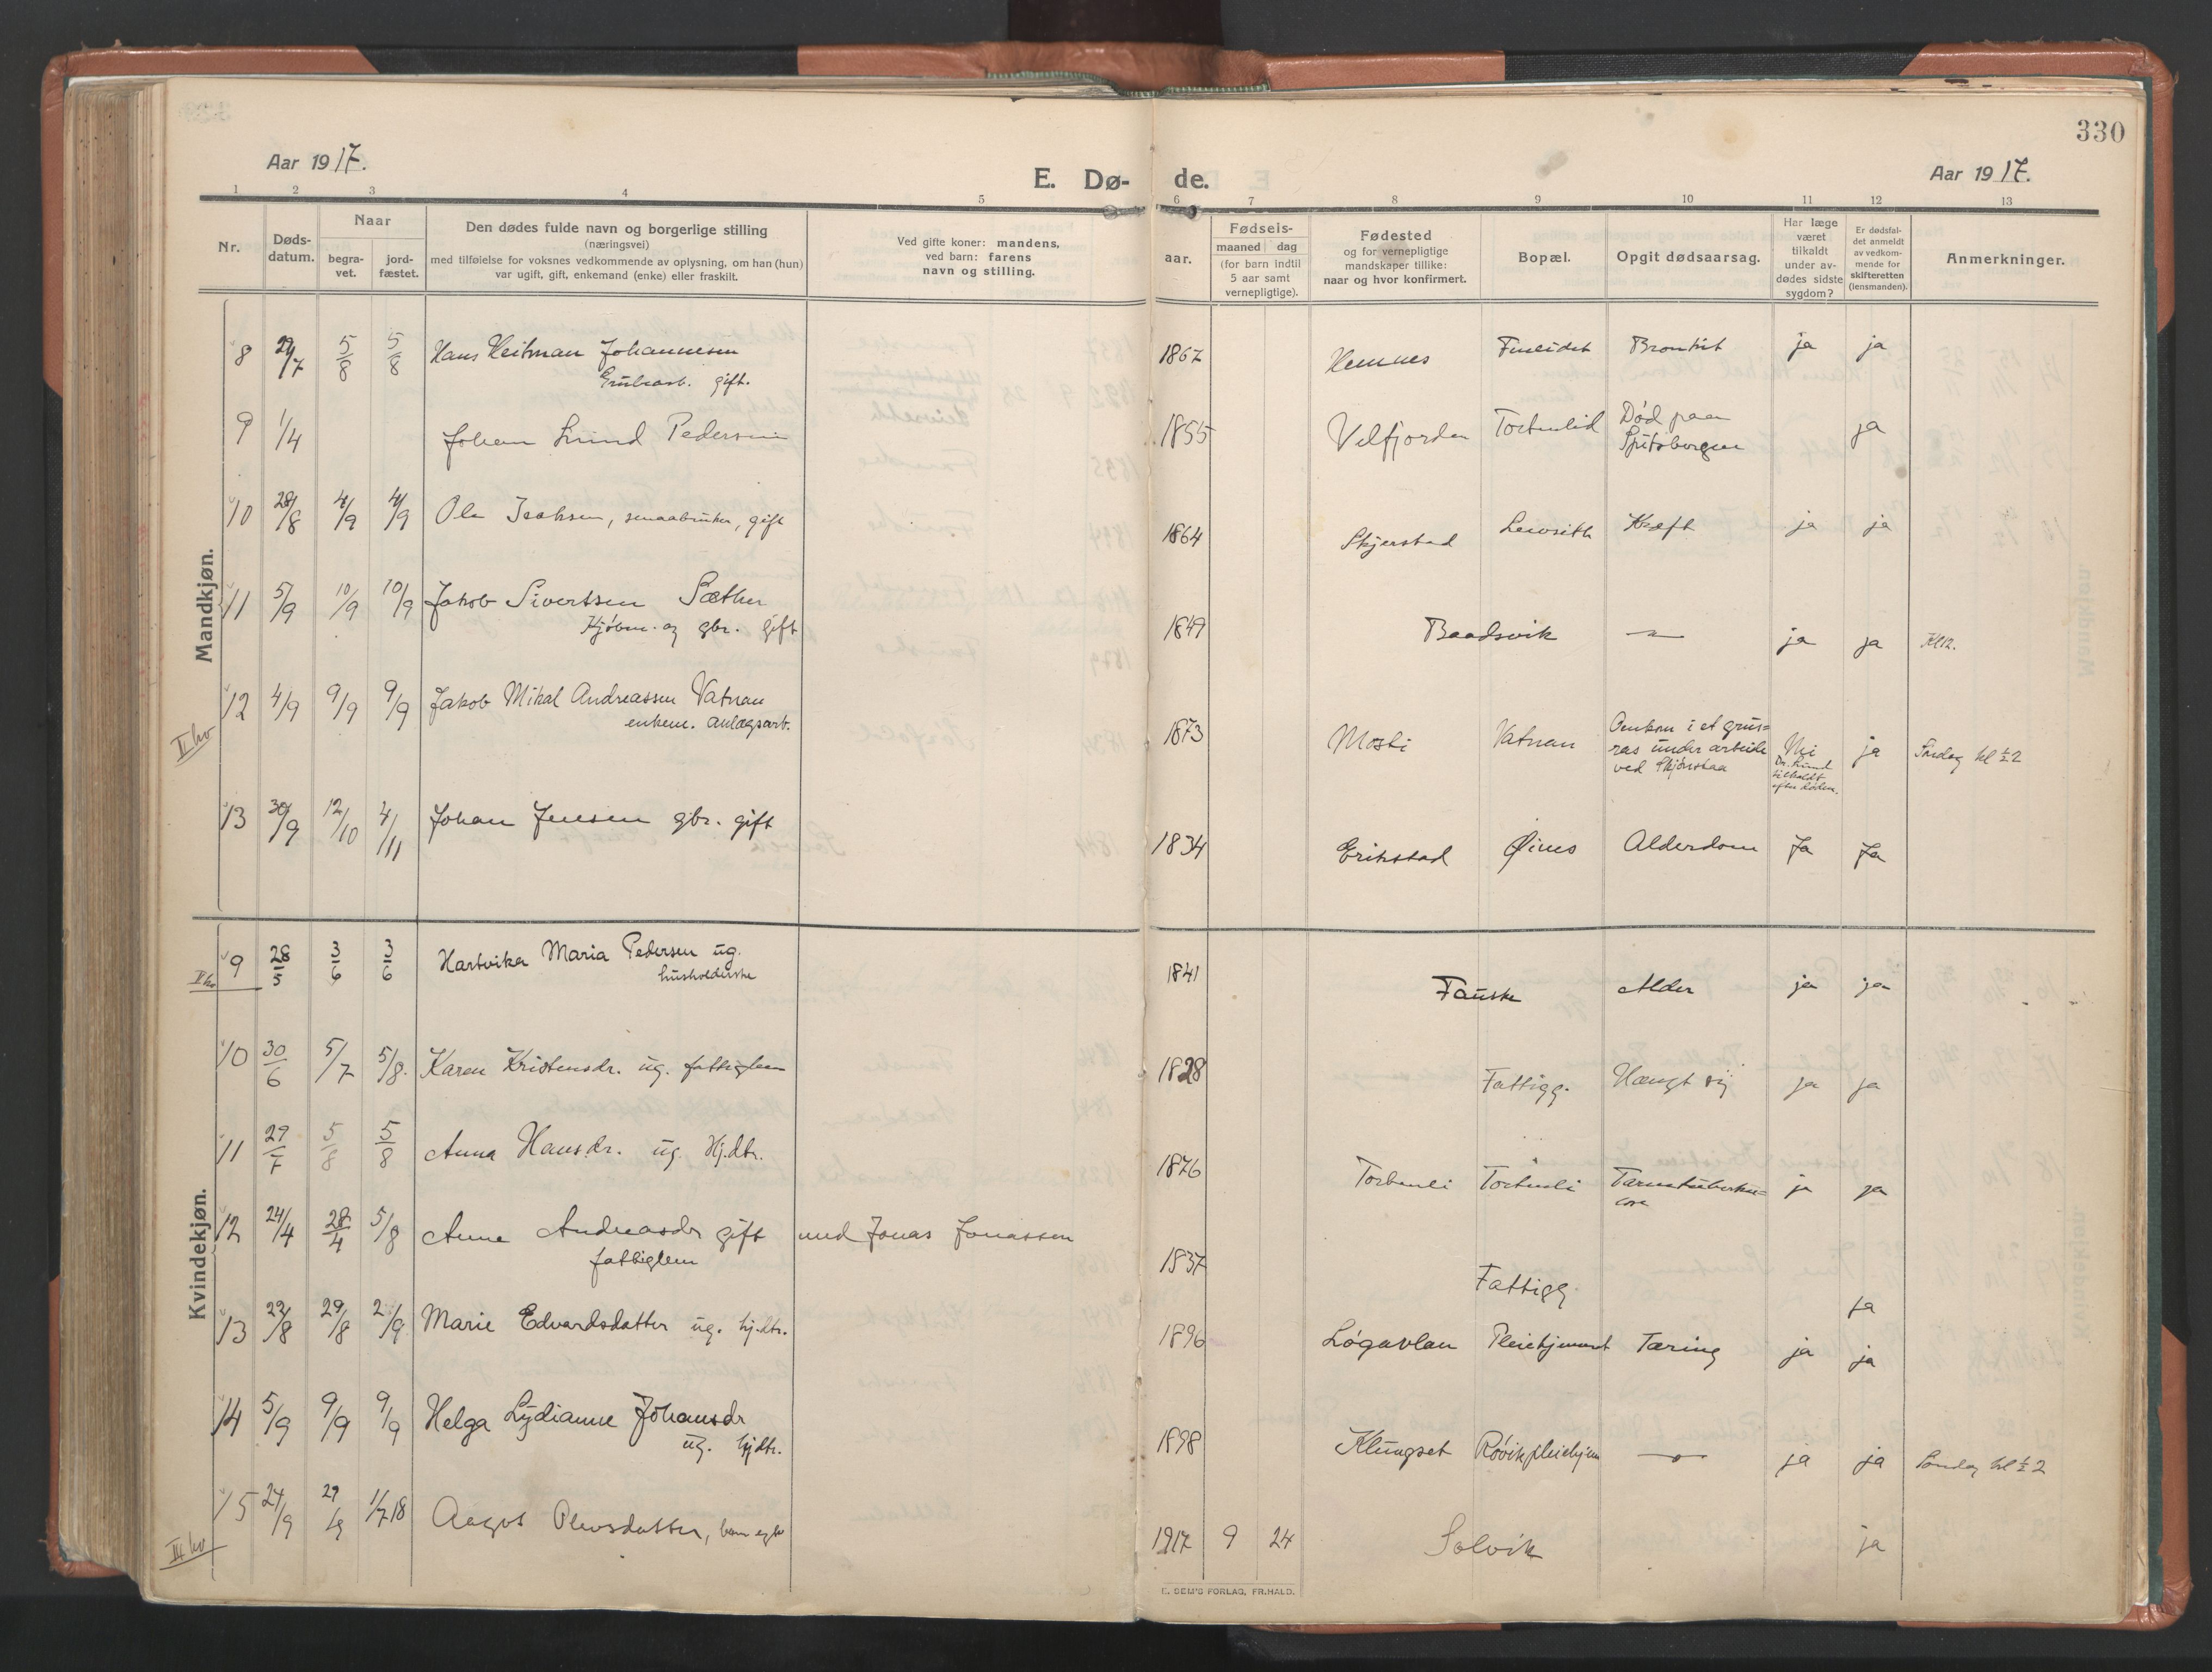 330
Aar 1917. E. Dø- de. Aar 1917.
1 2 3 4 5 6 7 8 9 10 11 12 13
Nr.
Døds-
datum.
Naar
begra-
vet.
jord-
fæstet.
Den dødes fulde navn og borgerlige stilling
(næringsvei)
med tilføielse for voksnes vedkommende av oplysning, om han (hun)
var ugift, gift, enkemand (enke) eller fraskilt.
Ved gifte koner: mandens,
ved barn: farens
navn og stilling.
Fødsels-
aar.
maaned dag
(for barn indtil
5 aar samt
vernepligtige).
Fødested
og for vernepligtige
mandskaper tillike:
naar og hvor konfirmert.
Bopæl.
Opgit dødsaarsag.
Har læge
været
tilkaldt
under av-
dødes sidste
sygdom?
Er dødsfal-
det anmeldt
av vedkom-
mende for
skifteretten
(lensmanden).
Anmerkninger.
Mandkjøn.
8 29/7 5/8 5/8 Hans Heitman Johannesen 1867 Hemnes Fineidet Bronkit ja ja
Grubearb. gift.
9 1/4 Johan Lund Pedersen 1855 Velfjorden Tortenlid Død paa ja
Spitsbergen
10 28/8 4/9 4/9 Ole Isaksen, smaabruker, gift 1864 Skjerstad Leivseth Kræft ja ja
11 5/9 10/9 10/9 Jakob Sivertsen Sæther 1849 Baadsvik —"— ja ja Kl 12.
Kjøbm. og gbr. gift
12 4/9 9/9 9/9 Jakob Mikal Andreassen Vatnan 1873 Mosti Vatnan Omkom i et grus= Nei ja Søndag kl ½2
enkem. anlægsarb. ras under arbeide Dr. Lund
ved Skjønstaa tilkaldt
efter døden.
II hv
13 30/9 12/10 4/11 Johan Jensen gbr. gift 1834 Erikstad Øines Alderdom Ja Ja
Kvindekjøn.
9 28/5 3/6 3/6 Hartvika Maria Pedersen ug. 1841 Fauske Alder ja ja
husholderske
10 30/6 5/7 5/8. Karen Kristensdr. ug. fattiglem 1828 Fattigg. Hængt sig ja ja
11 29/7 5/8 5/8 Anna Hansdr. ug. Hj.dtr. 1876 Tortenli Tortenli Tarmtuberku= ja ja
lose
12 24/4 28/4 5/8 Anne Andreasdr gift med Jonas Jonassen 1837 Fattigg. ja
fattiglem
13 23/8 29/8 2/9 Marie Edvardsdatter ug. hj.dtr. 1896 Løgavlen Pleiehjemmet Tæring ja ja
14 5/9 9/9 9/9 Helga Lydianne Johansdr 1898 Klungset Røvik pleiehjem —"— ja ja Søndag kl ½2
ug. hjdtr.
15 24/9 29/9 1/7 18 Aagot Olevsdatter, barn egte 1917 9 24 Solvik ja
III hv
E. SEM'S FORLAG, FR.HALD.